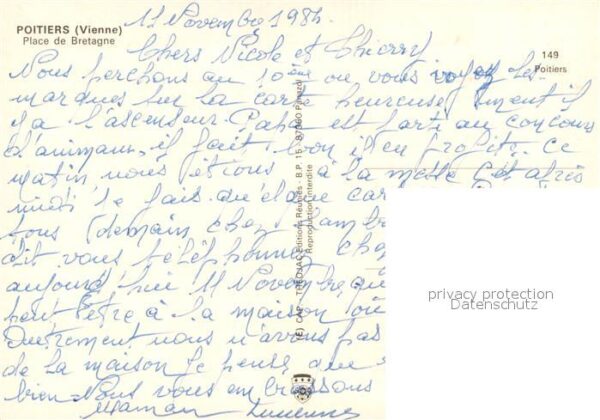 POITIERS (Vienne)
Place de Bretagne
149
Poitiers
11 Novembre 1984.
Chers Nicole et Thierry
Nous perchons au 10ème où vous voyez les
marques sur la carte heureusement il
y a l'ascenseur. Papa est parti au concours
d'animaux, il fait bon il en profite. Ce
matin nous étions à la messe cet après
midi je fais
tous demain chez
dit vous téléphonez
aujourd'hui 11 Novembre, que
peut être à la maison où
Autrement nous n'avons pas
de la maison je pense que
bien Nous vous embrassons
Maman Lucienne
(E) CAP - THEOJAC Editions Réunies - B.P. 15 -
Reproduction interdite
privacy protection
Datenschutz